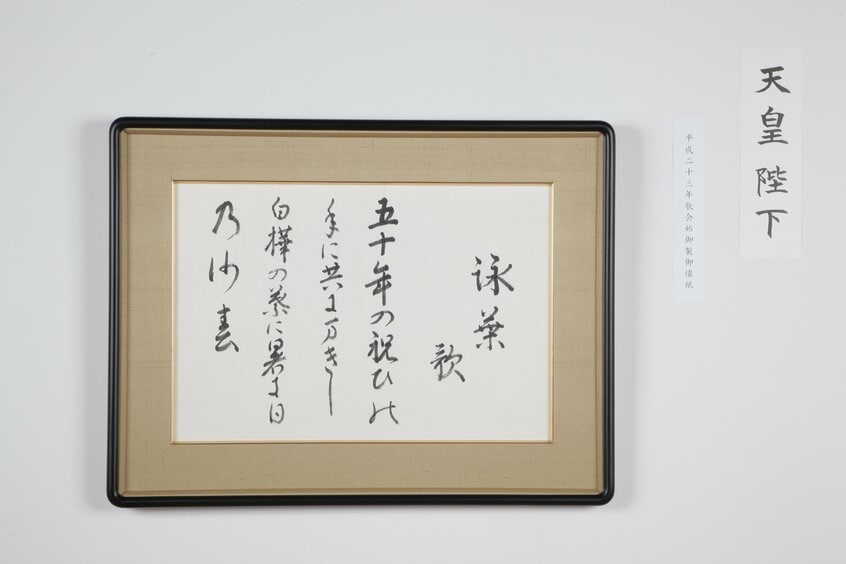 天皇陛下
平成二十三年歌会始御製御懐紙
詠葉
歌
五十年の祝ひ能
年に共尓万きし
白樺の葉に暑支日
乃沙春